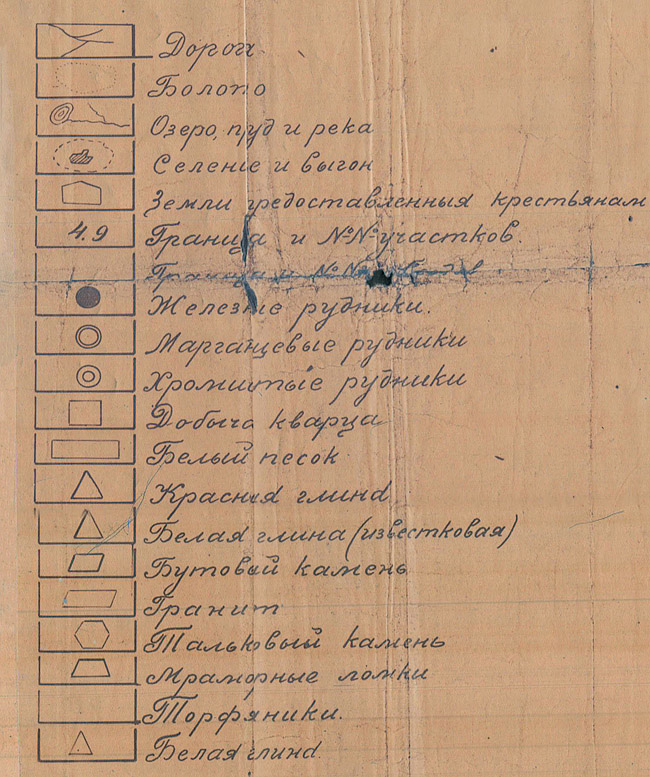 Дорога
Болото
Озеро, пуд и река
Селенiе и выгон
Земли предоставленныя крестьянам
4.9 Граница и №№ участков.
Граница и №№
Железные рудники.
Марганцевые рудники
Хромистые рудники
Добыча кварца
Белый песок
Красная глина
Белая глина (известковая)
Бутовый камень
Гранит
Тальковый камень
Мраморные ломки
Торфяники.
Белая глина.